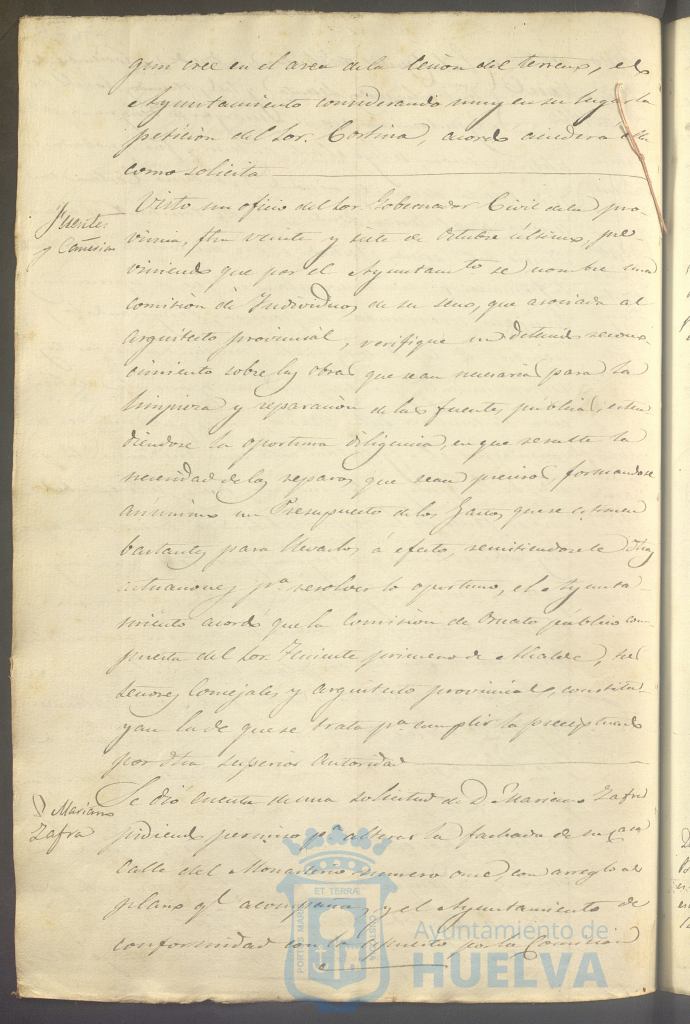 que cree en el area de la lesion del terreno, el
Ayuntamiento considerando muy en su lugar la
peticion del Sor. Cortina, acordó acceder á ella
como solicita
Fuentes
y Comision
Visto un oficio del Sor. Gobernador Civil de la pro-
vincia, fha veinte y siete de Octubre último, pre-
viniendo que por el Ayuntamto se nombre una
comision de Individuos de su seno, que asociada al
arquitecto provincial, verifique un detenido recono-
cimiento sobre las obras que sean necesarias para la
limpieza y reparacion de las fuentes públicas, esten-
diendose la oportuna diligencia, en que resulte la
necesidad de los reparos que sean precisos, formandose
asimismo un Presupuesto de los gastos que se estimen
bastantes para llevarlos á efecto, remitiendosele dhas
actuaciones pa. resolver lo oportuno, el Ayunta-
miento acordó que la Comision de Ornato público com-
puesta del Sor. Teniente primero de Alcalde, tres
Señores Concejales y arquitecto provincial, constitu-
yan la de que se trata pa. cumplir lo preceptuado
por dha superior autoridad
D Mariano
Zafra
Se dió cuenta de una solicitud de D. Mariano Zafra
pidiendo permiso pa. alterar la fachada de su casa
calle del Monasterio numero once, con arreglo al
plano q. acompaña, y el Ayuntamiento de
conformidad con lo espuesto por la Comision
PORTUS MARIS
ET TERRÆ
CUSTODIA
Ayuntamiento de
HUELVA